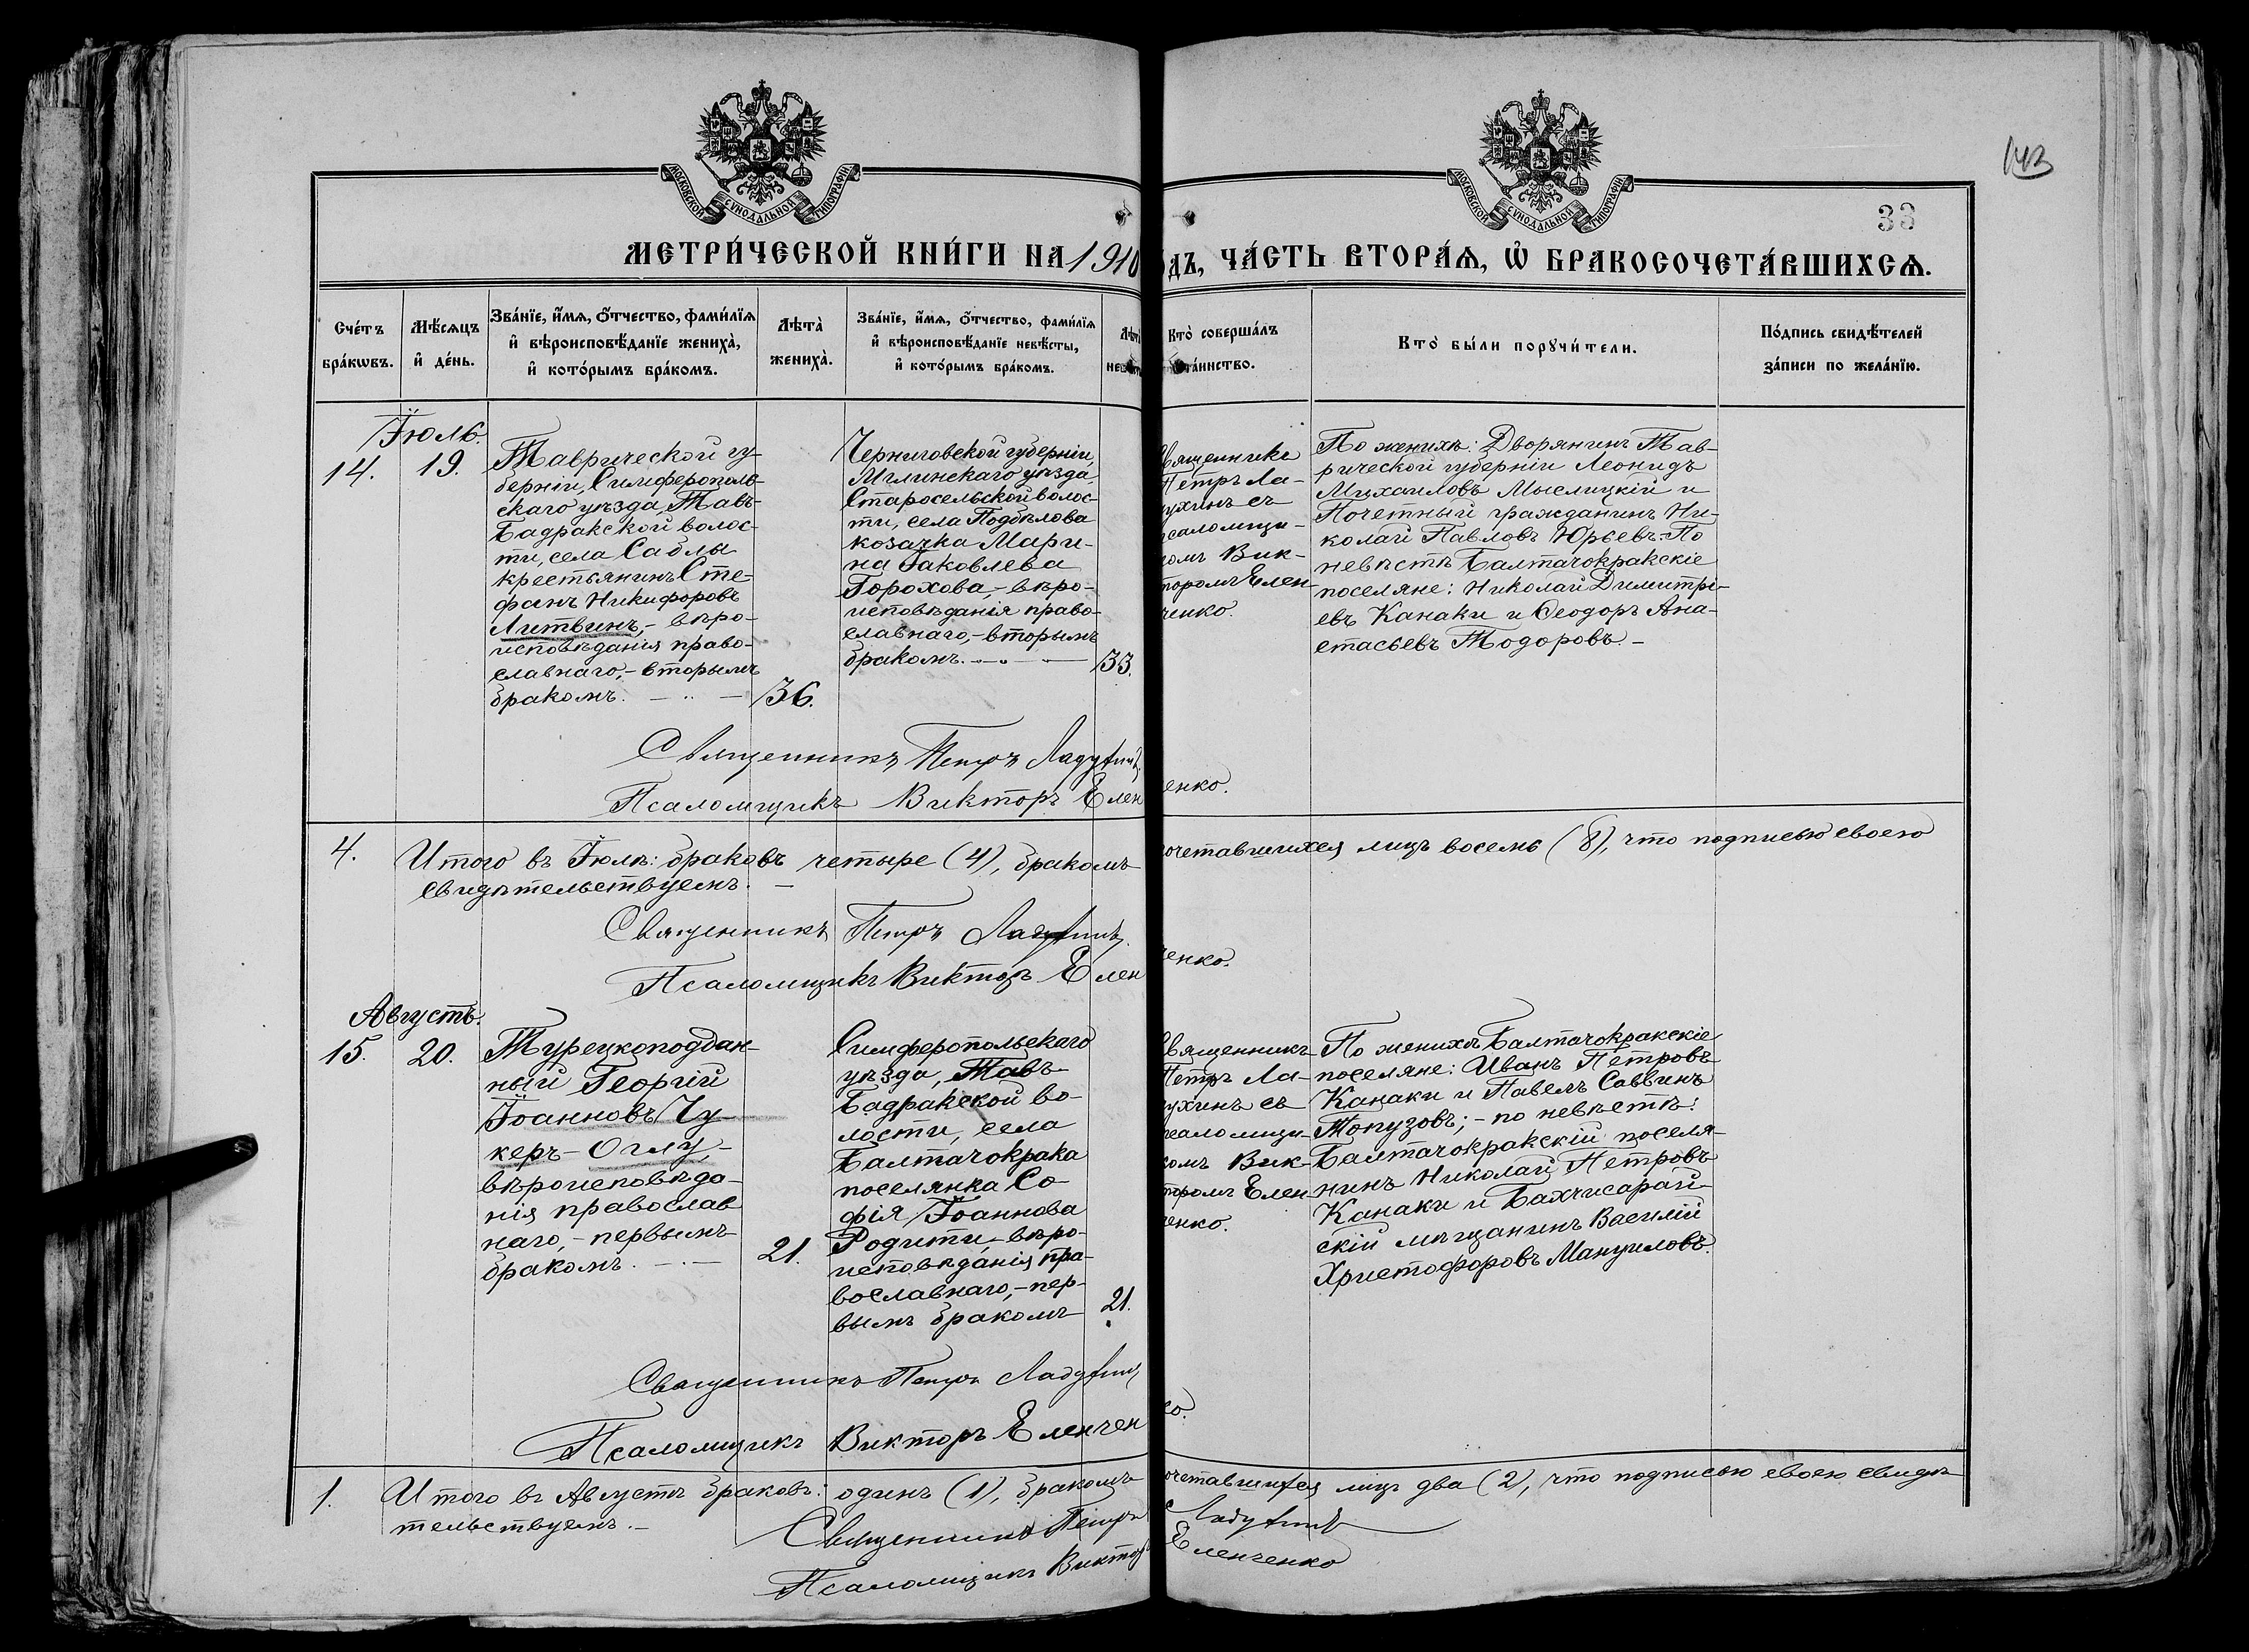 143
33
МОСКОВСКОЙ СѴНОДАЛЬНОЙ ТИПОГРАФІИ
МОСКОВСКОЙ СѴНОДАЛЬНОЙ ТИПОГРАФІИ
МЕТРИ́ЧЕСКОЙ КНИ́ГИ НА 1910
ДЪ, ЧА́СТЬ ВТОРА́Ѧ, Ѡ҆ БРАКОСОЧЕТА́ВШИХСѦ.
Сче́тъ
бра́кѡвъ.
Мѣ́сѧцъ
и҆ де́нь.
Зва́нїе, и҆́мѧ, ѻ҆́тчество, фами́лїѧ
и҆ вѣроисповѣ́данїе жениха̀,
и҆ кото́рымъ бра́комъ.
Лѣта̀
жениха̀.
Зва́нїе, и҆́мѧ, ѻ҆́тчество, фами́лїѧ
и҆ вѣроисповѣ́данїе невѣ́сты,
и҆ кото́рымъ бра́комъ.
Лѣта̀
Кто̀ соверша́лъ
та́инство.
Кто̀ бы́ли порꙋчи́тели.
По́дпись свидѣ́телей
за́писи по жела́нїю.
Іюль.
14.
19.
Таврической гу-
берніи, Симферополь-
скаго уѣзда, Тавъ-
Бадракской волос-
ти, села Саблы
крестьянинъ Сте-
фанъ Никифоровъ
Литвинъ,- вѣро-
исповѣданія право-
славнаго,- вторымъ
бракомъ. — „ —
36.
Черниговской губерніи,
Мглинскаго уѣзда,
Старосельской волос-
ти, села Подбѣлова
козачка Мари-
на Іаковлева
Горохова,- вѣро-
исповѣданія право-
славнаго,- вторымъ
бракомъ. — „ —
33.
вященникъ
Петръ Ла-
ухинъ съ
саломщи-
омъ Вик-
торомъ Елен-
ченко.
По женихѣ: Дворянинъ Тав-
рической губерніи Леонидъ
Михаиловъ Мыслицкій и
Почетный гражданинъ Ни-
колай Павловъ Юрьевъ.- По
невѣстѣ Балтачокракскіе
поселяне: Николай Димитрі-
евъ Канаки и Ѳеодоръ Ана-
стасьевъ Тодоровъ.-
Священникъ Петръ Ладухинъ.
Псаломщикъ Викторъ Елен
енко.
4.
Итого въ Іюлѣ: браковъ четыре (4), бракомъ
очетавшихся лицъ восемь (8), что подписью своею
свидѣтельствуемъ. —
Священникъ Петръ Ладухинъ.
Псаломщикъ Викторъ Елен
ченко.
Августъ.
15.
20.
Турецкоподдан-
ный Георгій
Іоанновъ Чу-
керъ-Оглу,-
вѣроисповѣда-
нія православ
наго,- первымъ
бракомъ. — . —
21.
Симферопольскаго
уѣзда, Тавъ-
Бадракской во-
лости, села
Балтачокрака
поселянка Со-
фія Іоаннова
Родити,- вѣро-
исповѣданія пра-
вославнаго,- пер-
вымъ бракомъ
21.
вященникъ
Петръ Ла-
ухинъ съ
саломщи-
омъ Вик-
торомъ Елен-
ченко.
По женихѣ Балтачокракскіе
поселяне: Иванъ Петровъ
Канаки и Павелъ Саввинъ
Топузовъ;- по невѣстѣ:
Балтачокракскій поселя-
нинъ Николай Петровъ
Канаки и Бахчисарай-
скій мѣщанинъ Василій
Христофоровъ Мануиловъ.
Священникъ Петръ Ладухинъ
Псаломщикъ Викторъ Еленчен
ко.
1.
Итого въ Августѣ браковъ: одинъ (1), бракомъ
очетавшихся лицъ два (2), что подписью своею свидѣ-
тельствуемъ.-
Священникъ Петръ Ладухинъ
Псаломщикъ Викторъ Еленченко